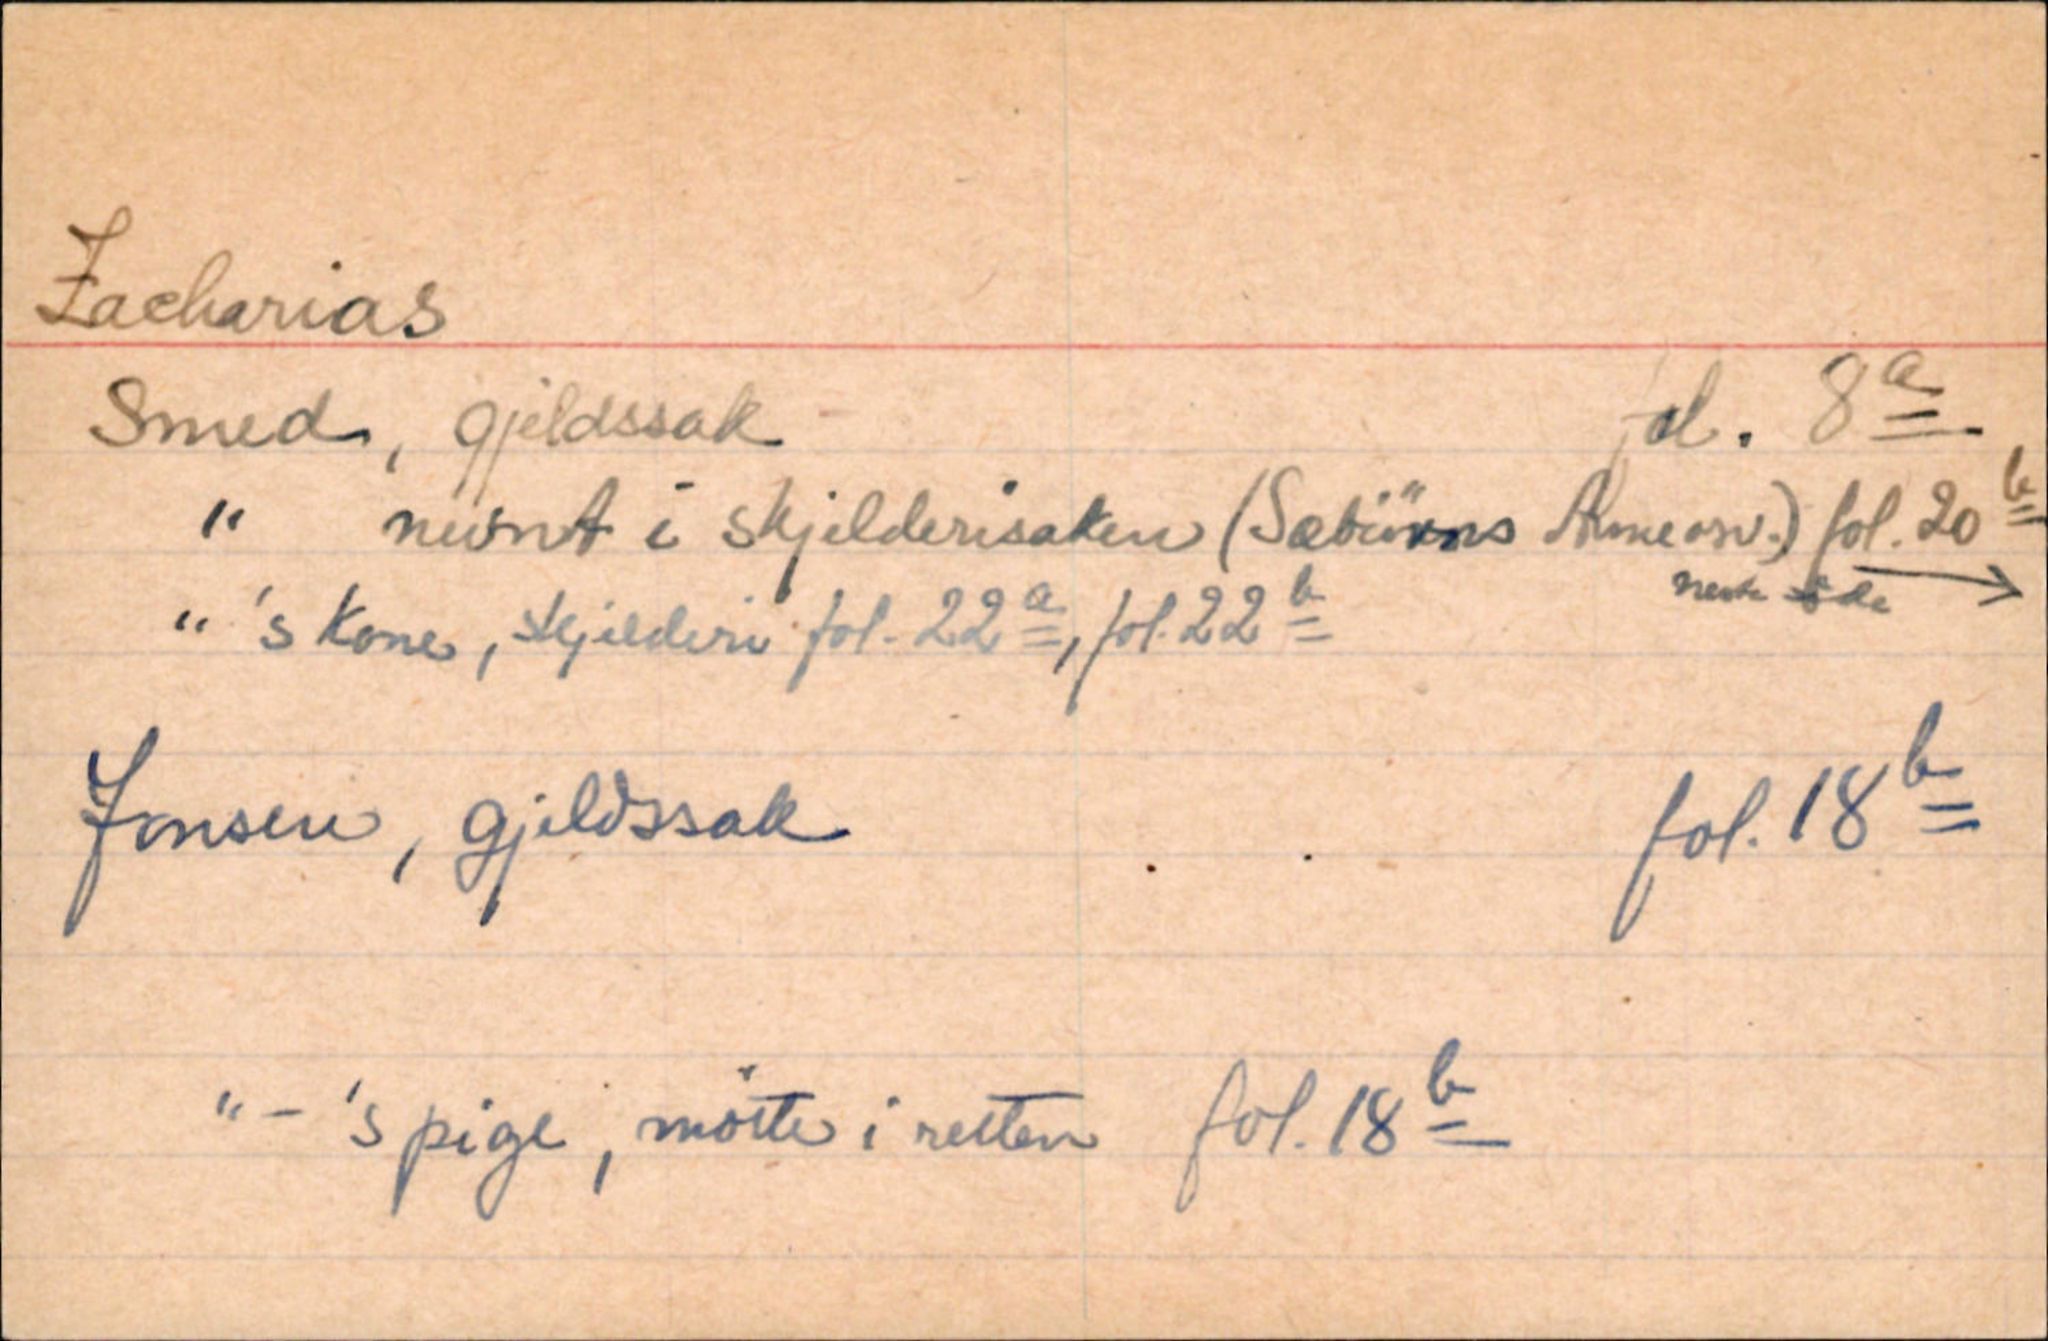 Zacharias
Smed, gjeldssak fol. 8a
" nevnt i skjelderisaken (Sæbiörns Anne osv.) fol. 20b
neste side →
" 's kone, skjelderi fol. 22a, fol. 22b
Jonsen, gjeldssak fol. 18b
" - 's pige, mötte i retten fol. 18b